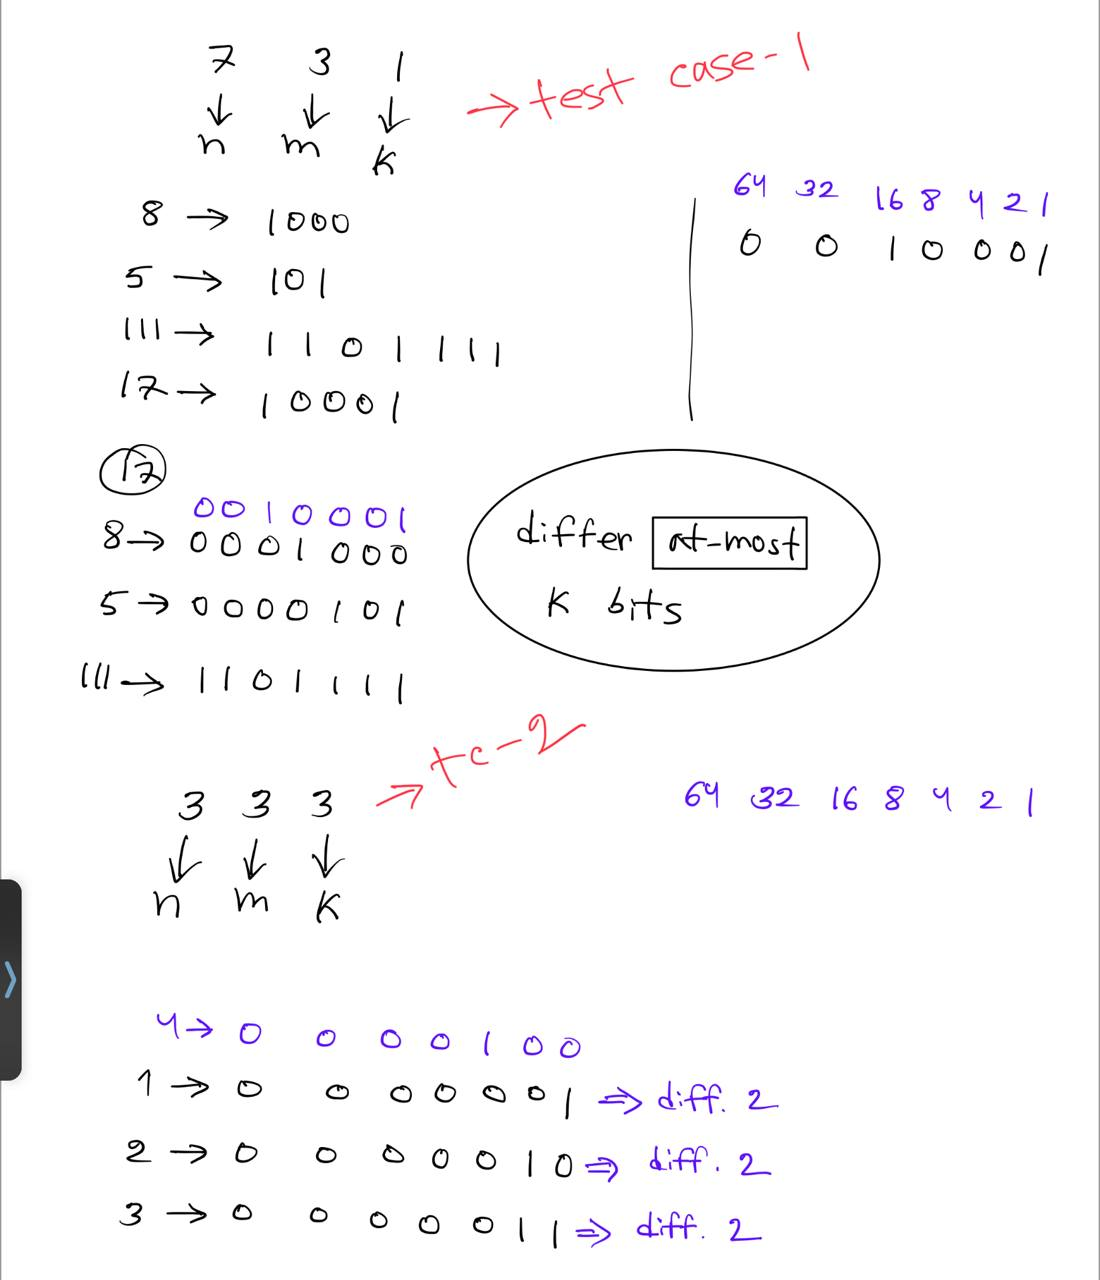 7 3 1
↓ ↓ ↓
n m k
→ test case-1
8 → 1000
5 → 101
111 → 1 1 0 1 1 1 1
17 → 1 0 0 0 1
64 32 16 8 4 2 1
0 0 1 0 0 0 1
17
0 0 1 0 0 0 1
8 → 0 0 0 1 0 0 0
5 → 0 0 0 0 1 0 1
111 → 1 1 0 1 1 1 1
differ at-most
k bits
3 3 3 → tc-2
↓ ↓ ↓
n m k
64 32 16 8 4 2 1
4 → 0 0 0 0 1 0 0
1 → 0 0 0 0 0 0 1 ⇒ diff. 2
2 → 0 0 0 0 0 1 0 ⇒ diff. 2
3 → 0 0 0 0 0 1 1 ⇒ diff. 2